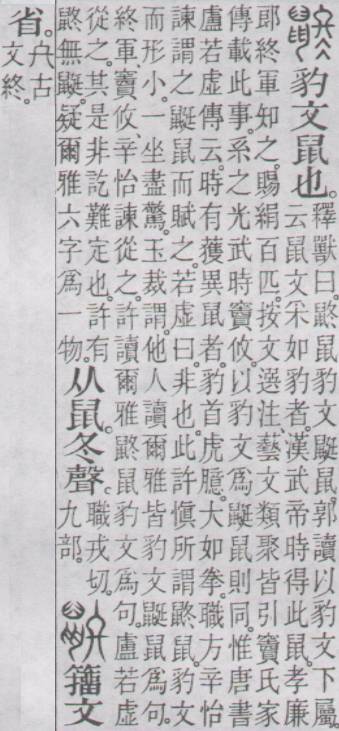 豹文鼠也。
釋獸曰。鼨鼠豹文鼮鼠。郭讀以豹文下屬。
云鼠文采如豹者。漢武帝時得此鼠。孝廉
郎終軍知之。賜絹百匹。按文選注、藝文類聚皆引竇氏家
傳載此事。系之光武時竇攸。以豹文爲鼮鼠則同。惟唐書
盧若虛傳云。時有獲異鼠者。豹首虎臆。大如拳。職方辛怡
諫謂之鼮鼠而賦之。若虛曰。非也。此許愼所謂鼨鼠。豹文
而形小。一坐盡驚。玉裁謂。他人讀爾雅皆豹文鼮鼠爲句。
終軍、竇攸、辛怡諫從之。許讀爾雅鼨鼠豹文爲句。盧若虛
從之。其是非訖難定也。許有
鼨無鼮。疑爾雅六字爲一物。
从鼠。冬聲。
職戎切。
九部。
籒文
省。
古
文終。